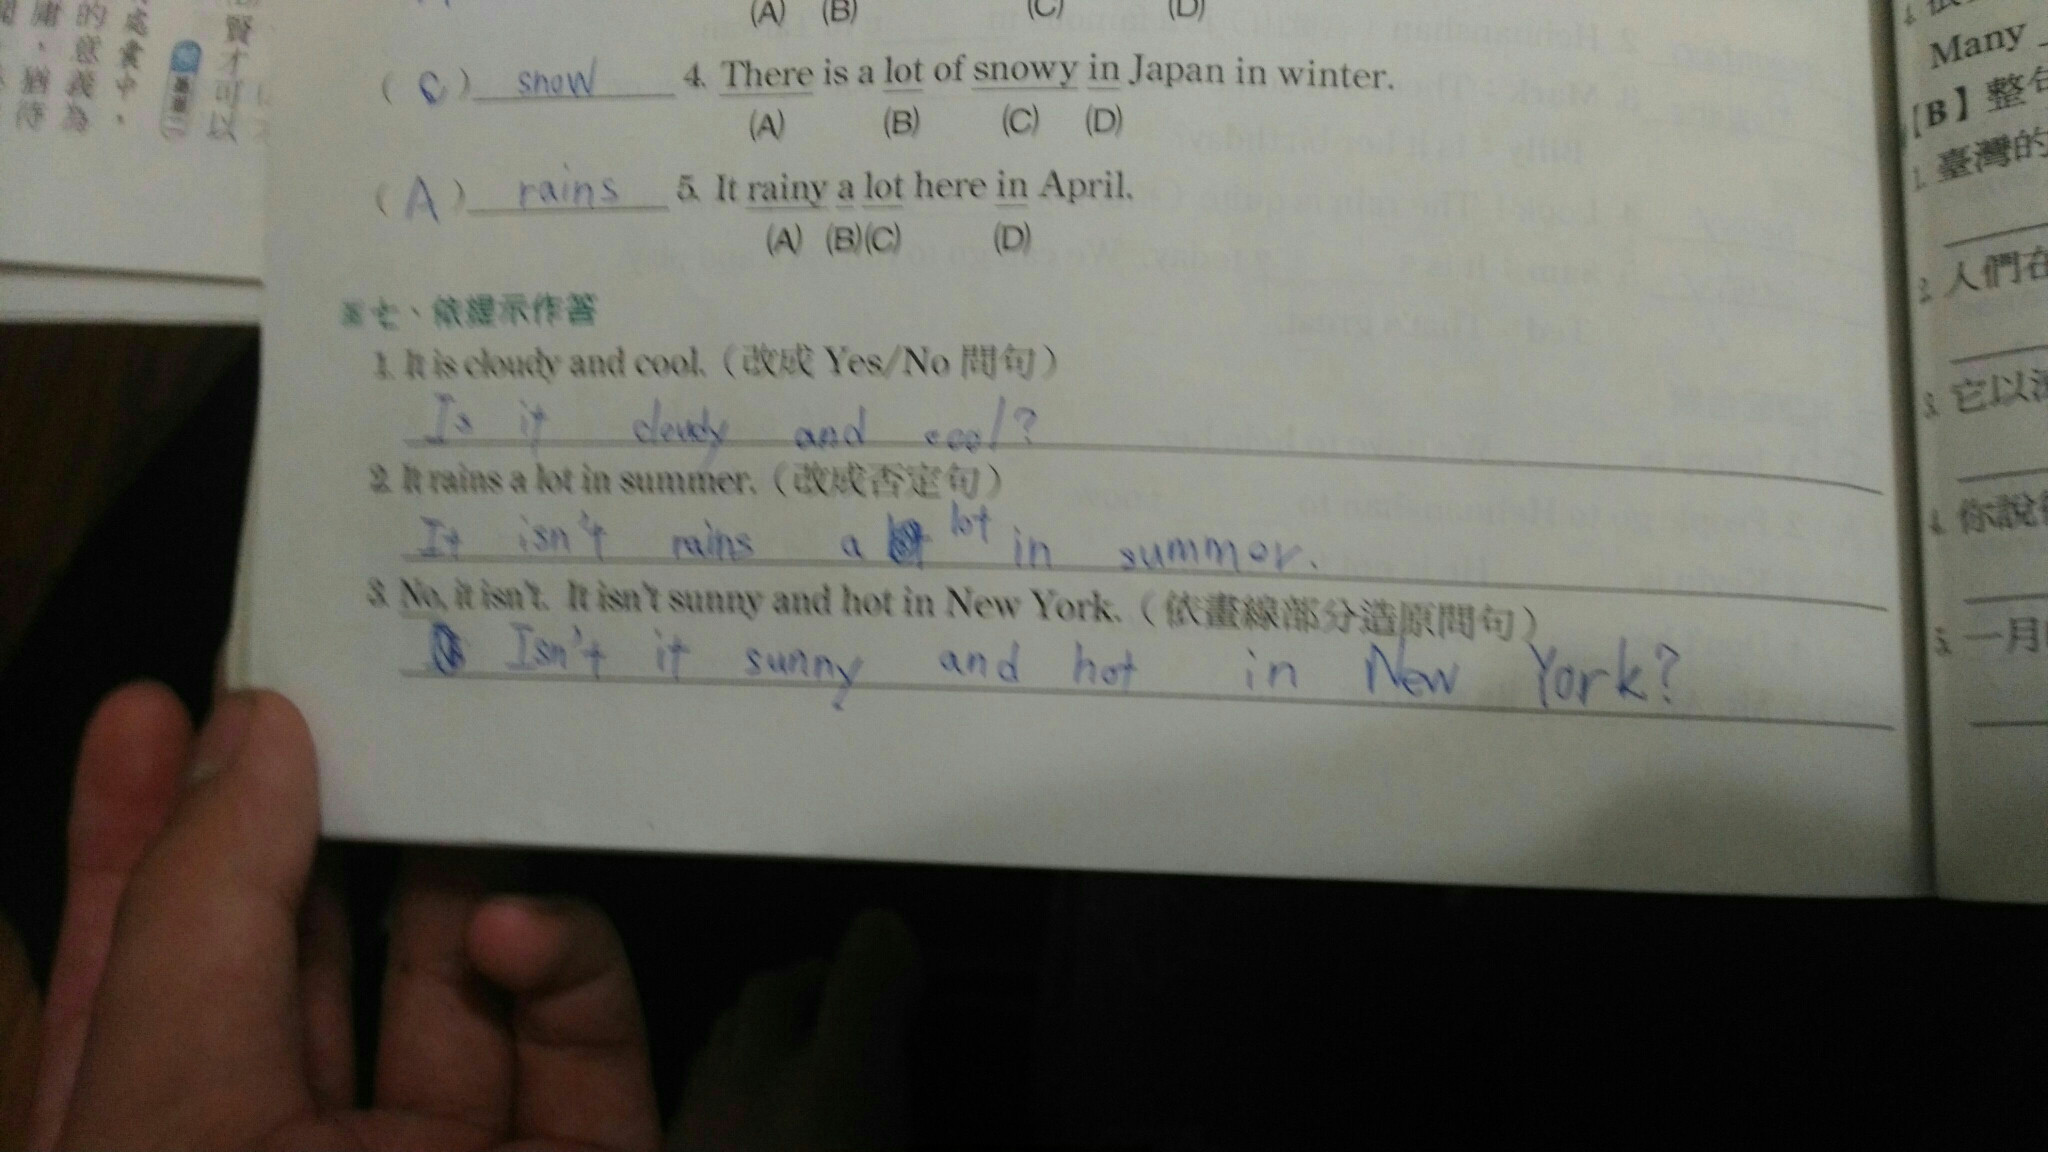 (A) (B) (C) (D)
( C ) snow 4. There is a lot of snowy in Japan in winter.
(A) (B) (C) (D)
( A ) rains 5. It rainy a lot here in April.
(A) (B)(C) (D)
七、依提示作答
1. It is cloudy and cool.（改成 Yes/No 問句）
Is it cloudy and cool?
2. It rains a lot in summer.（改成否定句）
It isn't rains a lot in summer.
3. No, it isn't. It isn't sunny and hot in New York.（依畫線部分造原問句）
Isn't it sunny and hot in New York?
處囊中，
的意義為
猶待
賢才可以
Many
【B】整
1. 臺灣的
2. 人們在
3. 它以
4. 你說
5. 一月